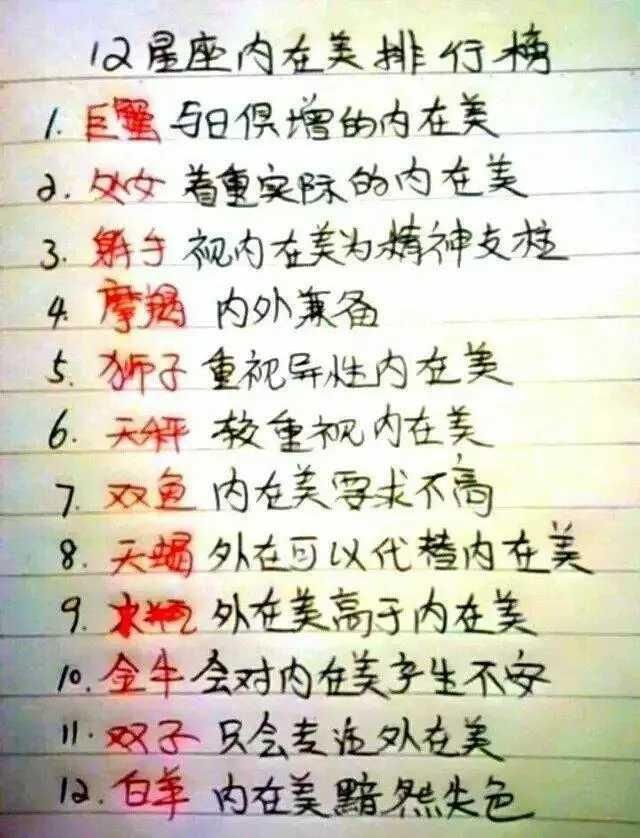 12星座内在美排行榜
1. 巨蟹 与日俱增的内在美
2. 处女 着重实际的内在美
3. 射手 视内在美为精神支柱
4. 摩羯 内外兼备
5. 狮子 重视异性内在美
6. 天秤 较重视内在美
7. 双鱼 内在美要求不高
8. 天蝎 外在可以代替内在美
9. 水瓶 外在美高于内在美
10. 金牛 会对内在美产生不安
11. 双子 只会专注外在美
12. 白羊 内在美黯然失色